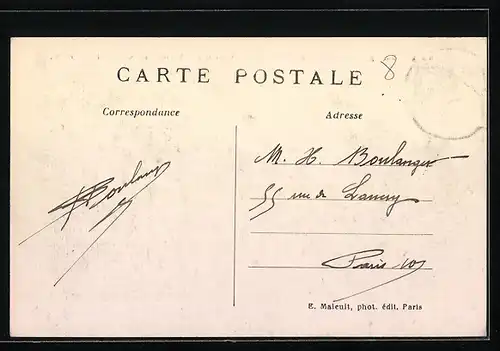 8
CARTE POSTALE
Correspondance
Adresse
M. H. Boulanger
55 rue de Lancry
Paris 10
E. Maleuit, phot. édit. Paris